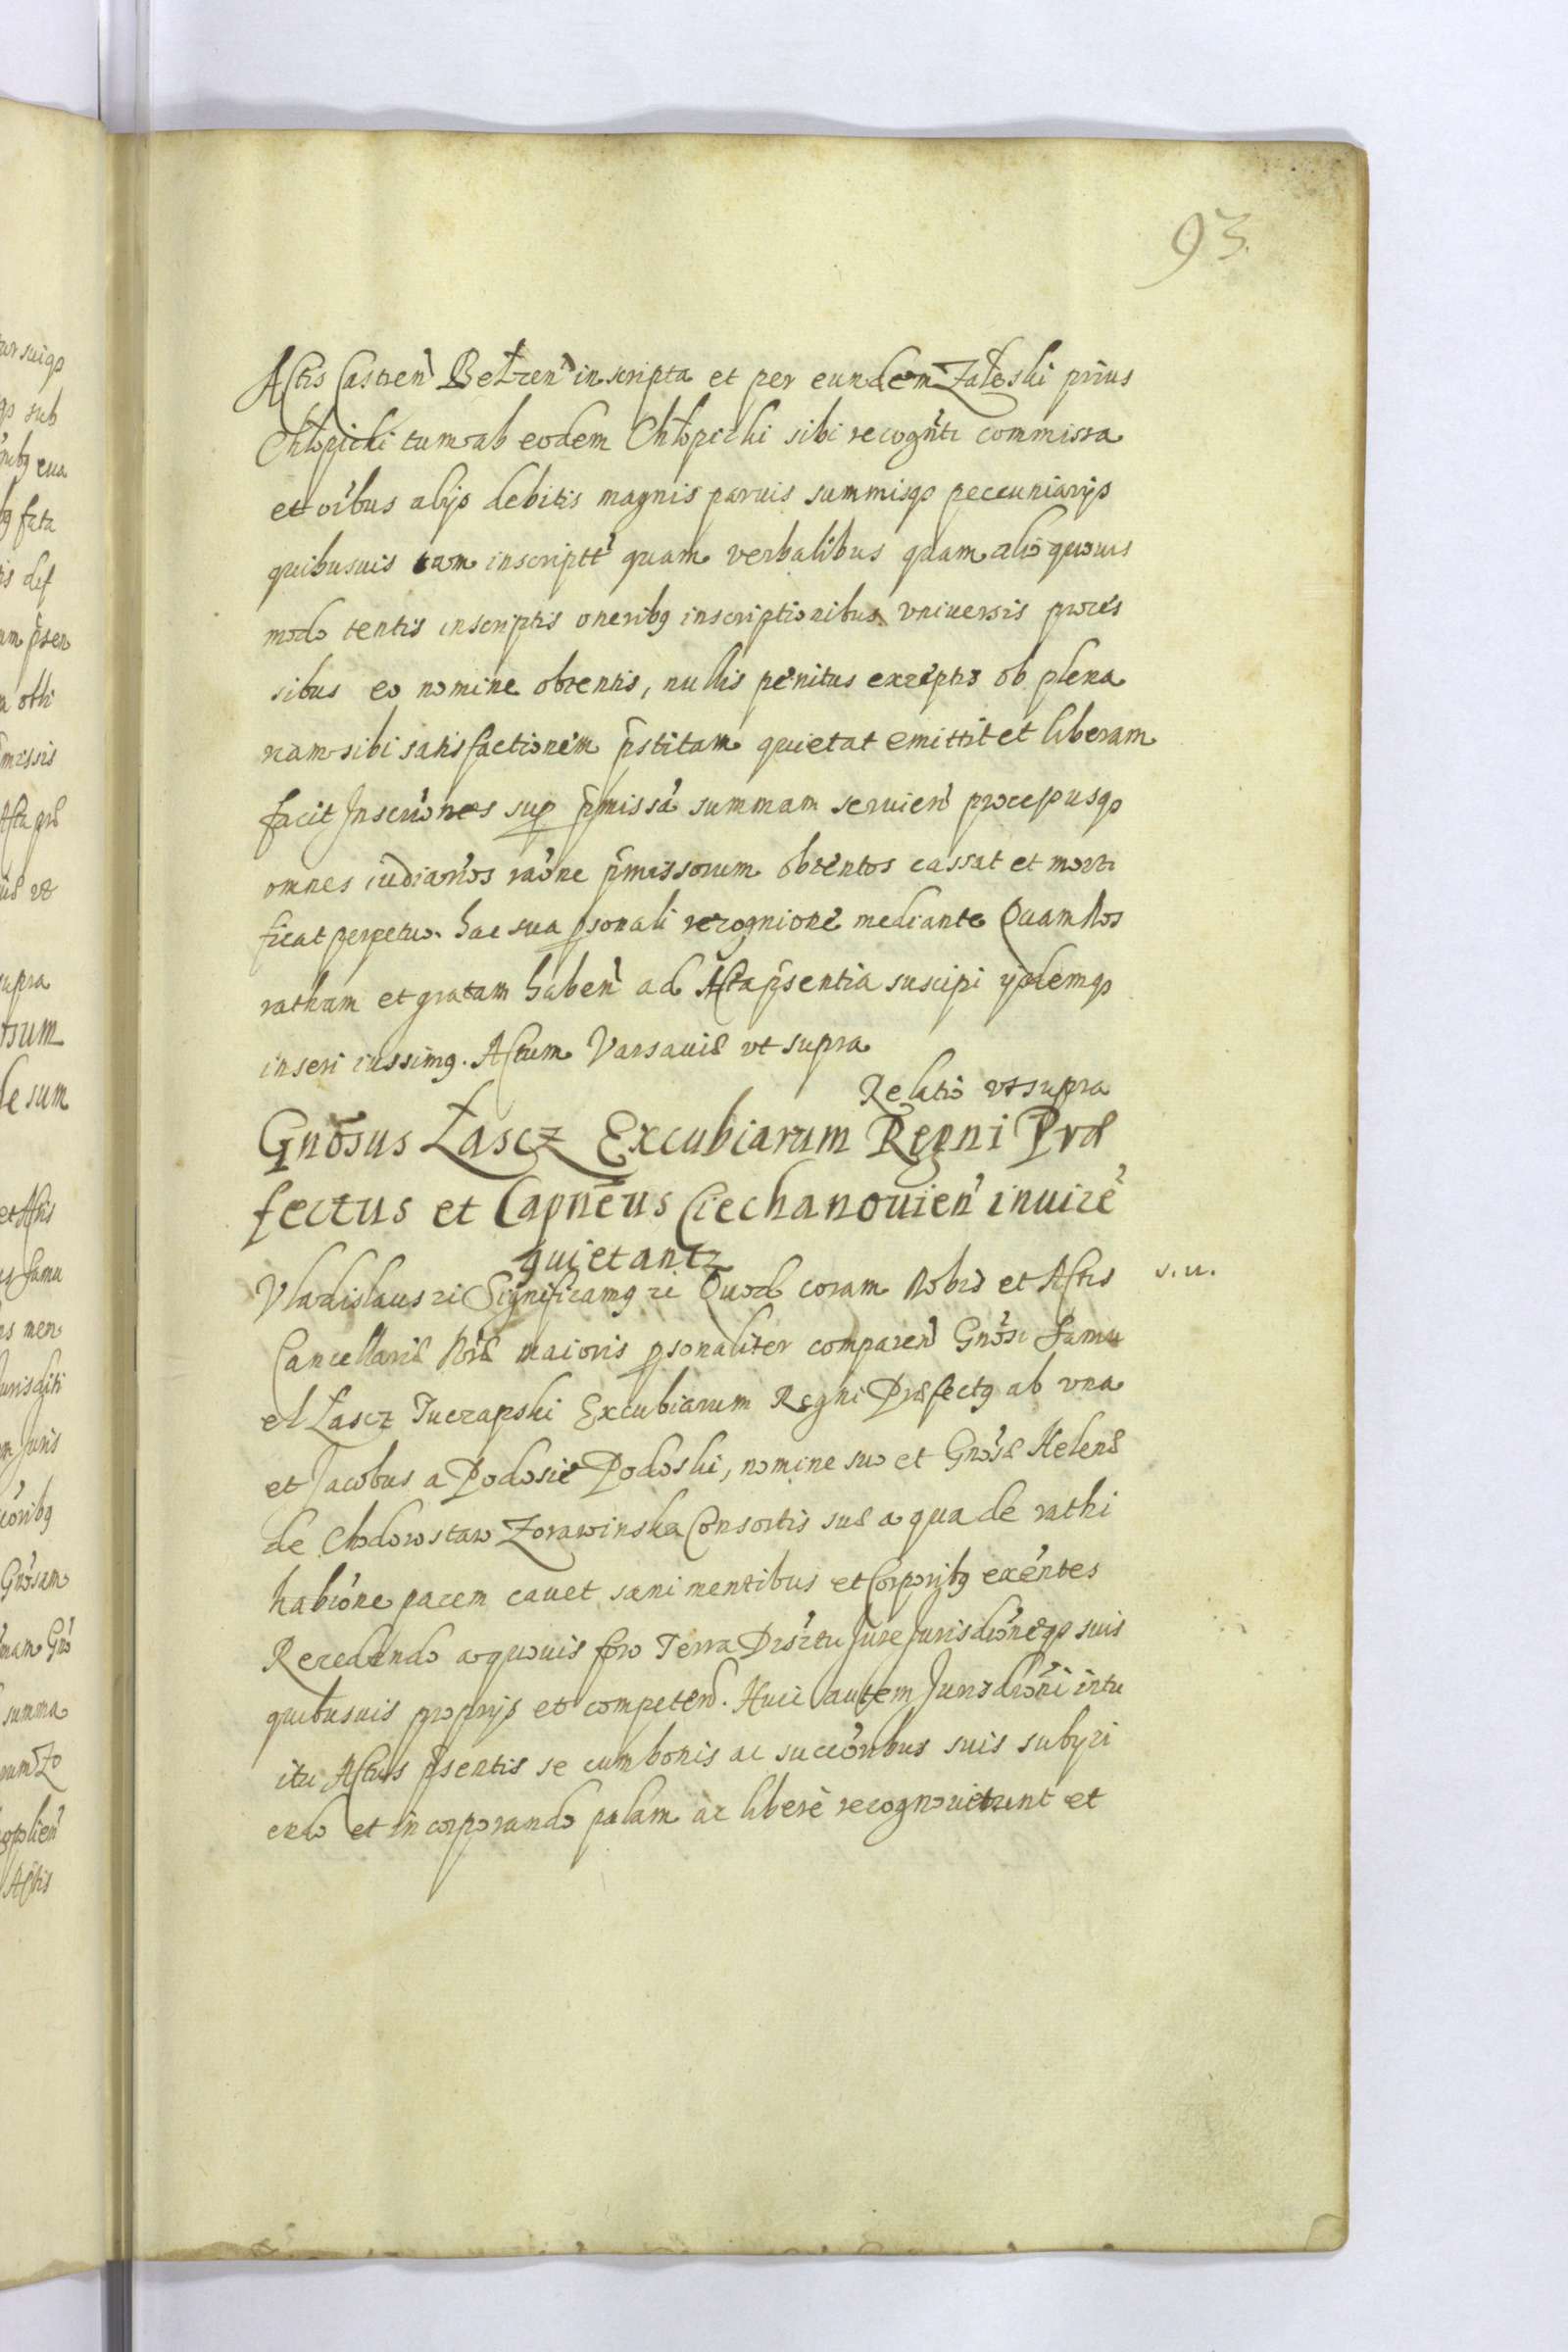 93.
Actis Castren Bełzen inscripta et per eundem Zaleski prius
Chłopicki tum ab eodem Chłopicki sibi recognti commissa
et oibus alijs debitis magnis paruis summisq peccuniarijs
quibusuis tam inscriptt quam verbalibus quam alio quouis
modo tentis inscriptis oneribq inscriptionibus vniuersis proces
sibus eo nomine obtentis, nullis penitus exceptis ob plena
riam sibi satisfactionem pstitam quietat emittit et liberam
facit Inscriones sup pmissa summam seruien processusq
omnes iudiarios raone pmissorum obtentos cassat et morti
ficat perpetuo hac sua psonali recognione mediante Quam Nos
ratham et gratam haben ad Acta psentia suscipi ijsdemq
inseri iussimq. Actum Varsauiæ vt supra
Relatio vt supra
Gnosus Łascz Excubiarum Regni Præ
fectus et Capneus Ciechanouien inuice
quietantz
Vladislaus zi Significamq zi Quod coram Nobis et Actis s. u.
Cancellariæ Nræ maioris psonaliter comparen Gnosi Samu
el Łascz Tuczapski Excubiarum Regni Præfectq ab vna
et Jacobus a Podosie Podoski, nomine suo et Gnosæ Helenæ
de Chodorostaw Zorawinska Consortis suæ a qua de rathi
habione pacem cauet sani mentibus et Corporibq exentes
Recedendo a quouis foro Terra Disrtu Jure Jurisdioneqs suis
quibusuis proprijs et competen. Huic autem Jurisdioni intu
itu Actus psentis se cum bonis ac succoribus suis subijci
endo et incorporando palam ac libere recognouerunt et